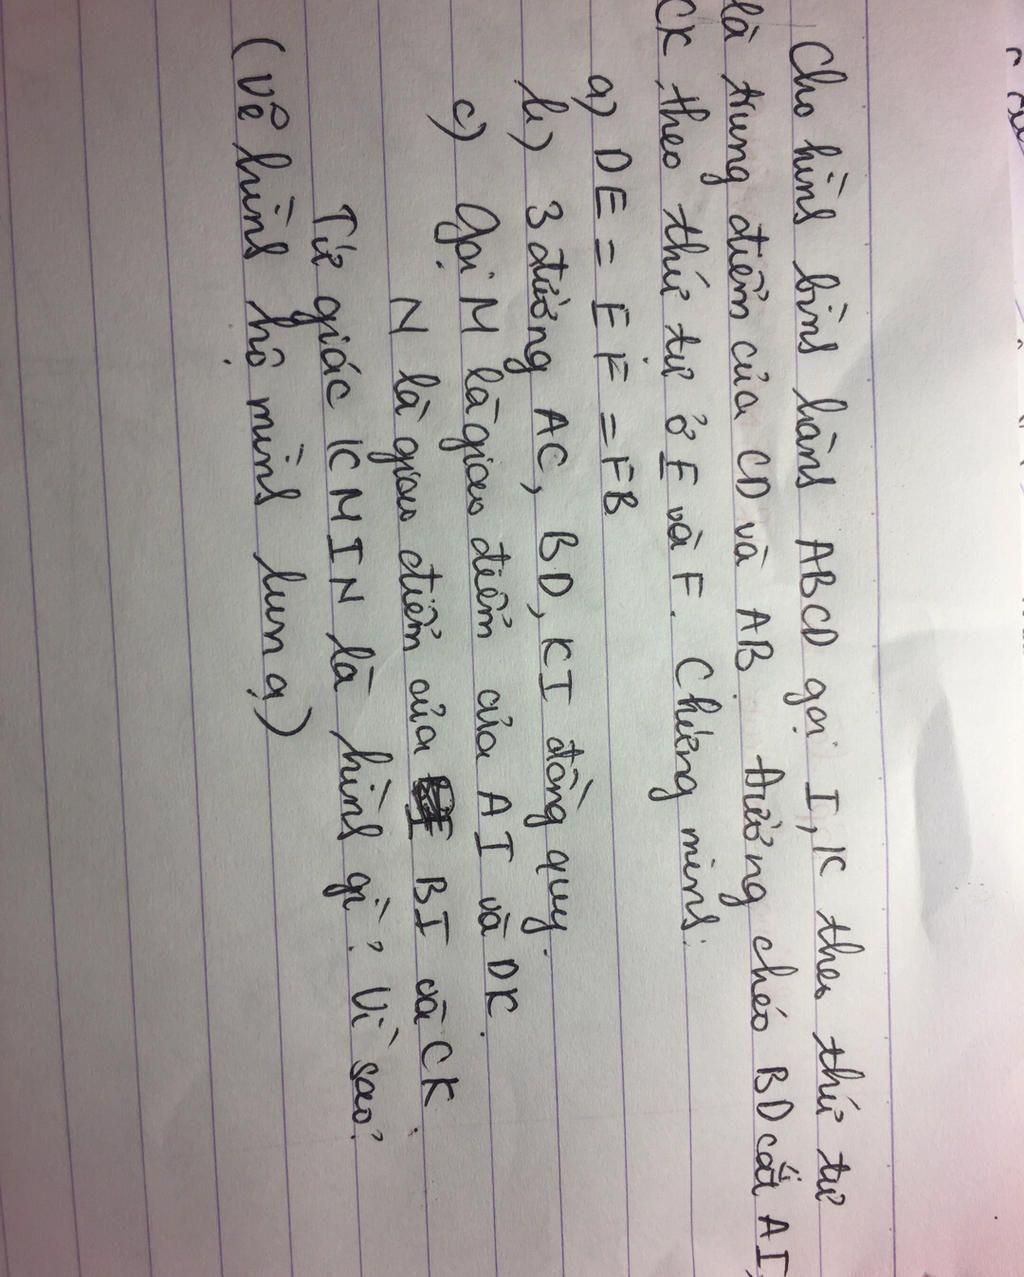 Cho hình bình hành ABCD gọi I, K theo thứ tự
là trung điểm của CD và AB. Đường chéo BD cắt AI,
CK theo thứ tự ở E và F. Chứng minh:
a) DE = EF = FB
b) 3 đường AC, BD, KI đồng quy.
c) Gọi M là giao điểm của AI và DK.
N là giao điểm của BI và CK.
Tứ giác KMIN là hình gì? Vì sao?
(Vẽ hình hộ mình lun ạ)